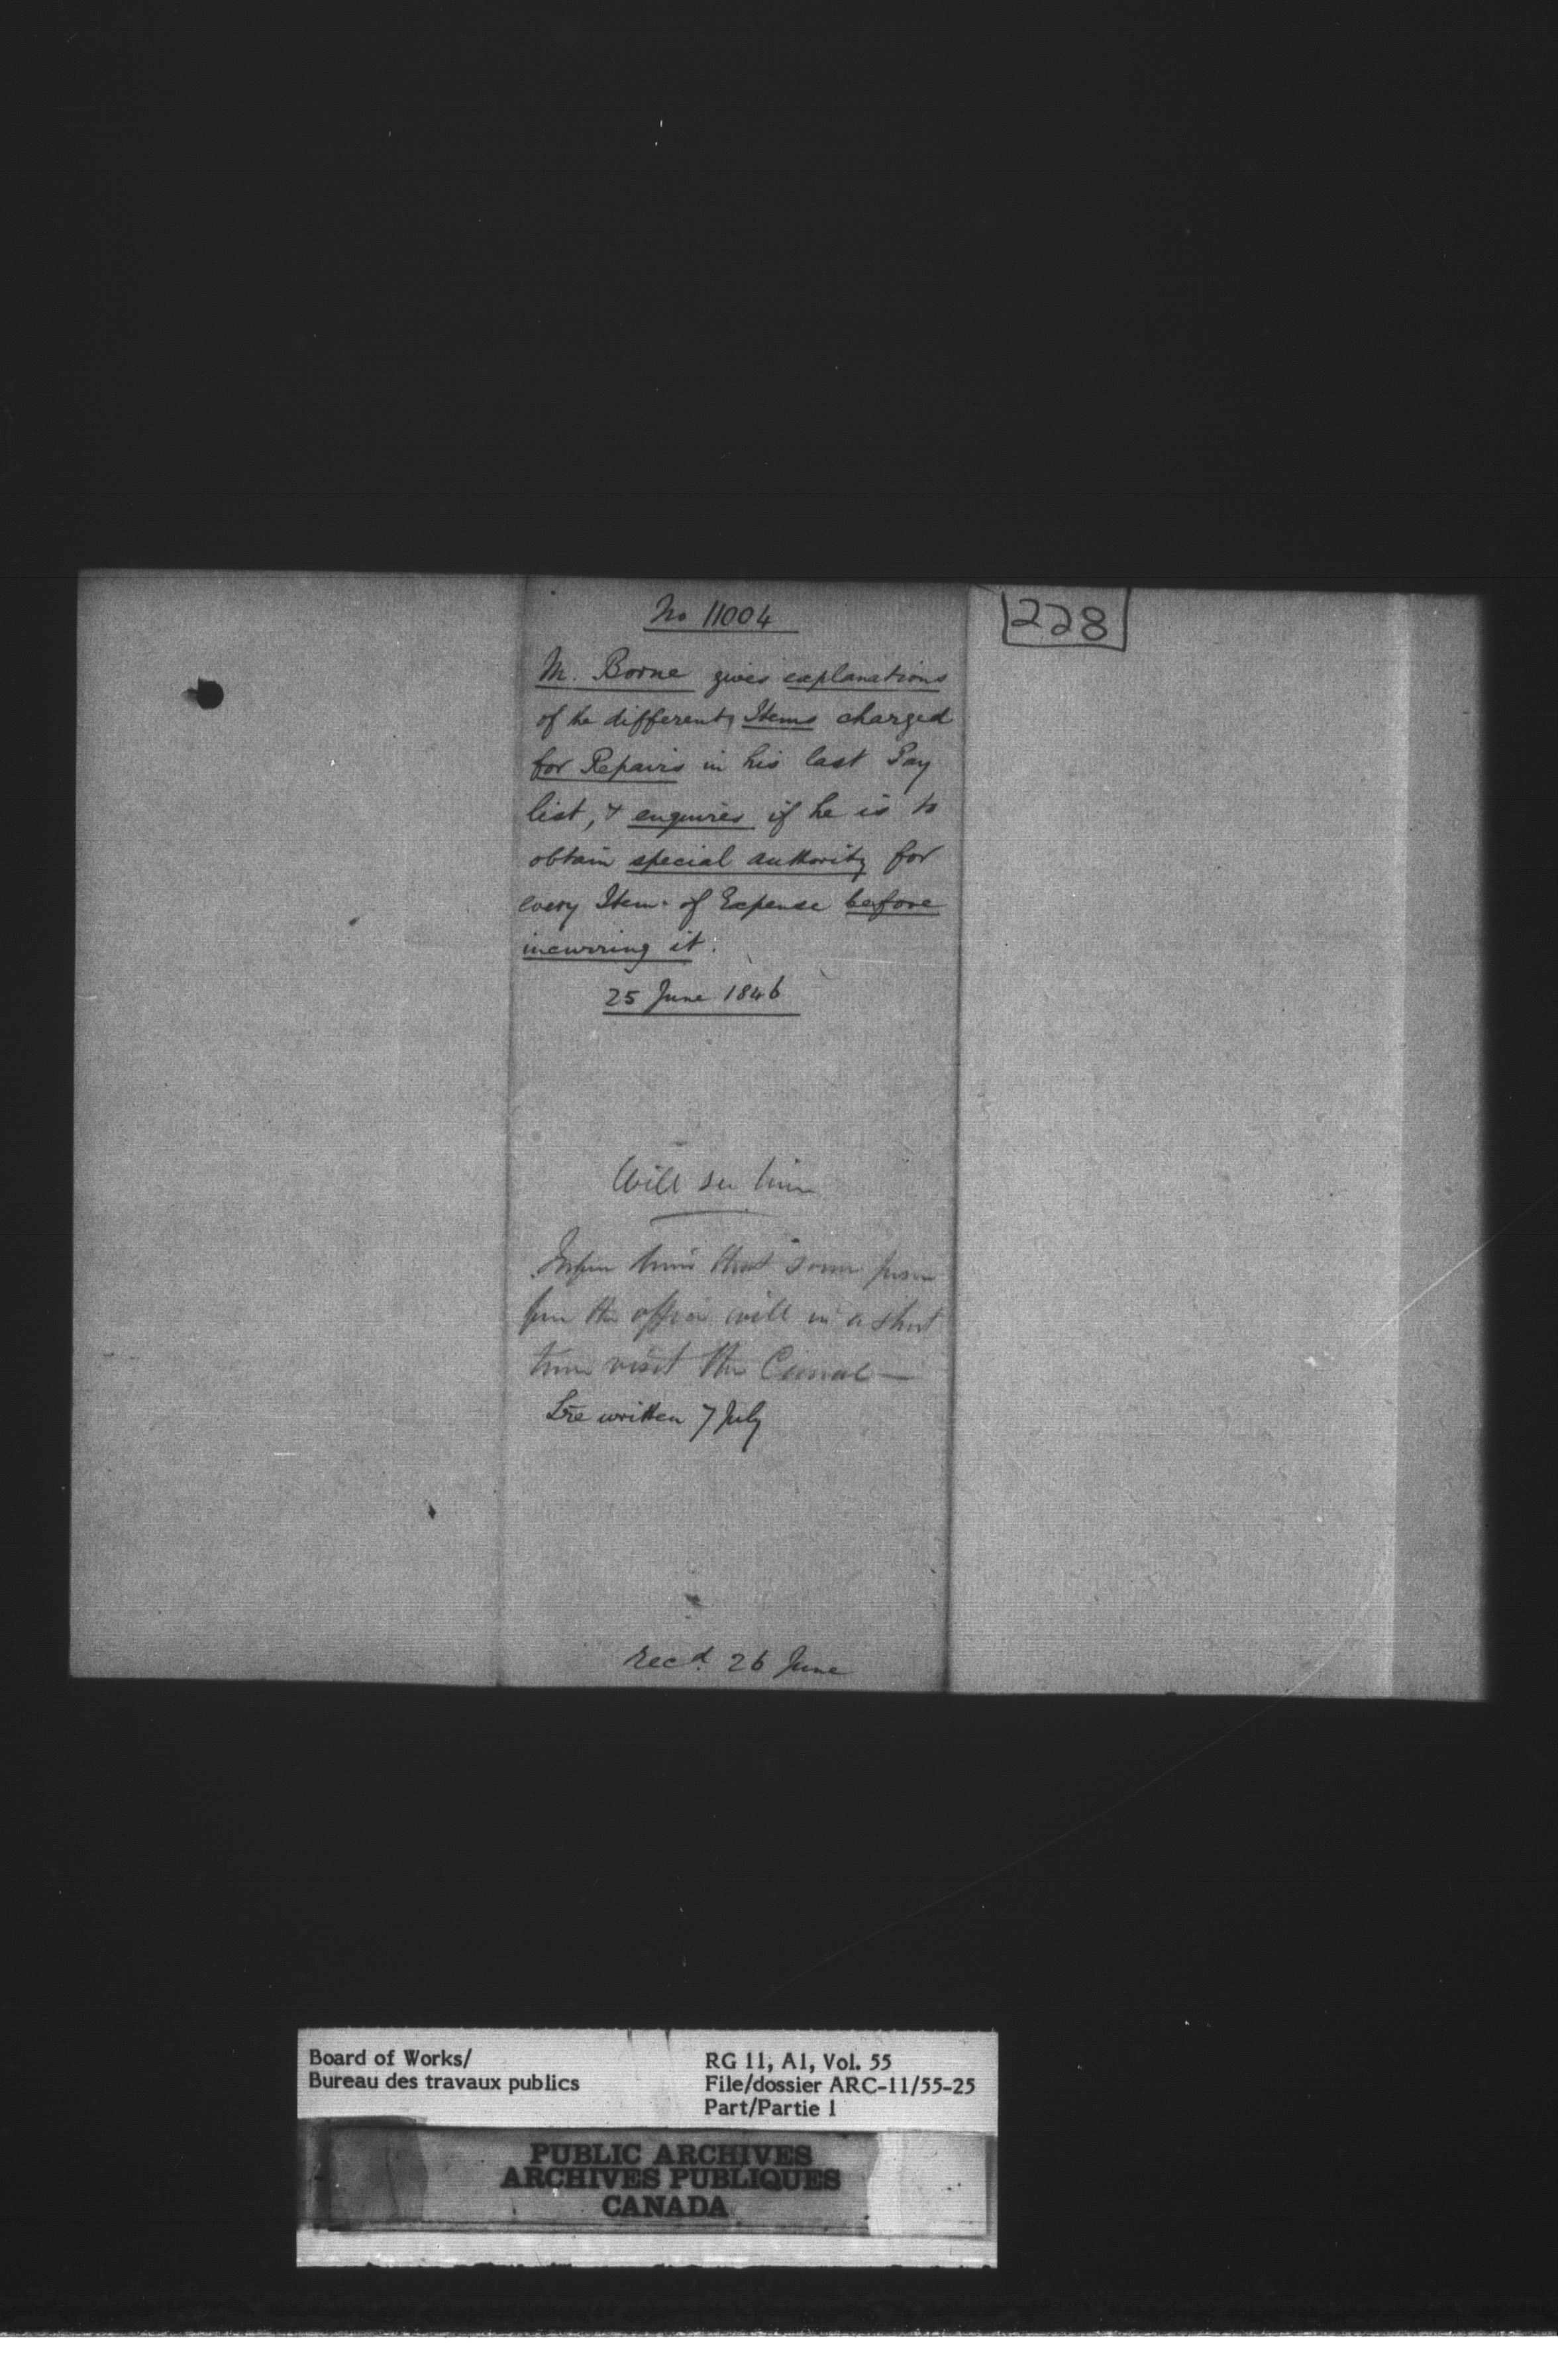 No 11004
228
M. Borne gives explanations
of the different Items charged
for Repairs in his last Pay
list, & enquires if he is to
obtain special authority for
every Item of Expense before
incurring it.
25 June 1846
Will see him
Inform him that some person
from the office will in a short
time visit the Canal —
Lre written 7 July
Recd. 26 June
Board of Works/
Bureau des travaux publics
RG 11, A1, Vol. 55
File/dossier ARC-11/55-25
Part/Partie 1
PUBLIC ARCHIVES
ARCHIVES PUBLIQUES
CANADA